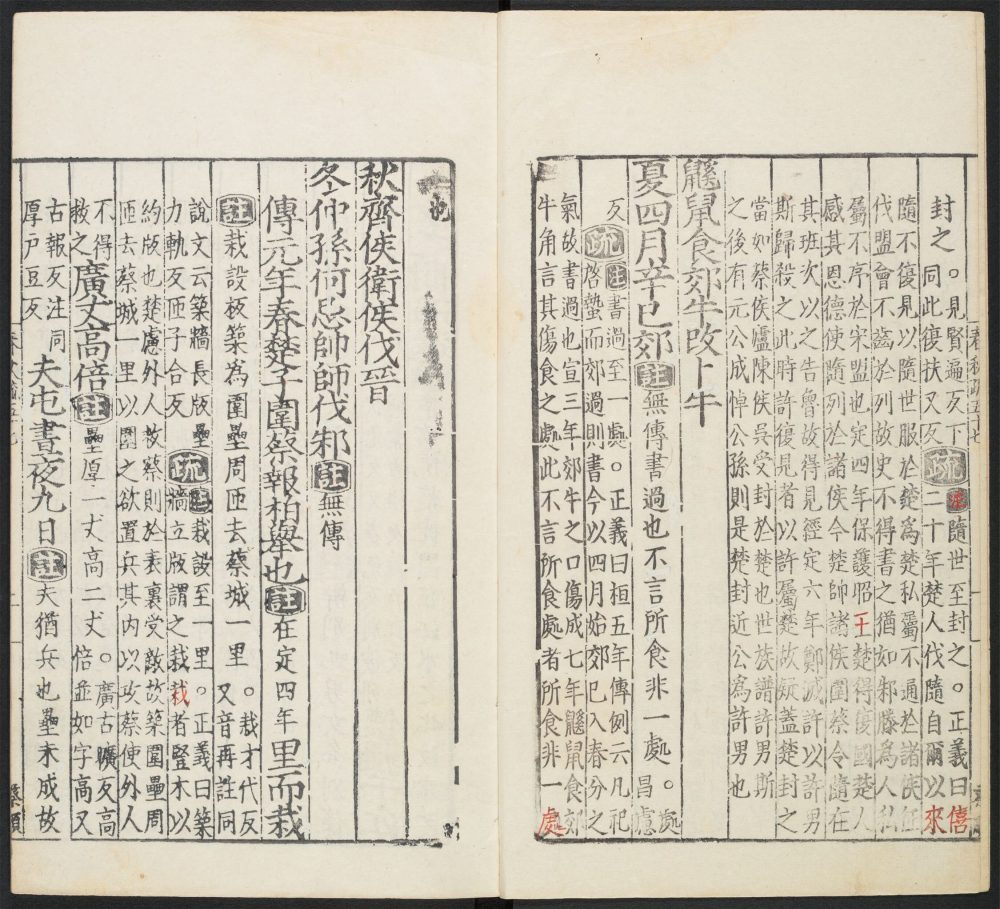 封之。見賢遍反下
同此復扶又反疏注隨世至封之。正義曰僖
二十年楚人伐隨自爾以來
隨不復見以隨世服於楚爲楚私屬不通於諸侯征
伐盟會不齒於列故史不得書之猶如邾滕爲人私
屬不序於宋盟也定四年保護昭王楚得復國楚人
感其恩德使隨列於諸侯今楚帥諸侯圍蔡令隨在
其班次以之告魯故得見經定六年鄭滅許以許男
斯歸殺之此時許復見者以許屬楚故疑蓋楚封之
當如蔡侯廬陳侯吳受封於楚也世族譜許男斯
之後有元公成悼公孫則是楚封近公爲許男也
鼷鼠食郊牛改卜牛
夏四月辛巳郊註無傳書過也不言所食非一處。處
昌慮
反疏注書過至一處。正義曰桓五年傳例云凡祀
啓蟄而郊過則書今以四月始郊已入春分之
氣故書過也宣三年郊牛之口傷成七年鼷鼠食郊
牛角言其傷食之處此不言所食處者所食非一處
也
秋齊侯衛侯伐晉
冬仲孫何忌帥師伐邾註無傳
傳元年春楚子圍蔡報柏舉也註在定四年里而栽
註栽設板築為圍壘周匝去蔡城一里。栽才代反
又音再註同
說文云築牆長版疏注栽設至一里。正義曰築
力軌反匝子合反壘牆立版謂之栽栽者豎木以
約版也楚慮外人救蔡則於表裏受敵故築圍壘周
匝去蔡城一里以圍之欲置兵其內以攻蔡使外人
不得
救之廣丈高倍註壘厚一丈高二丈。廣古曠反高
倍並如字高又
古報反注同
厚戶豆反夫屯晝夜九日註夫猶兵也壘未成故